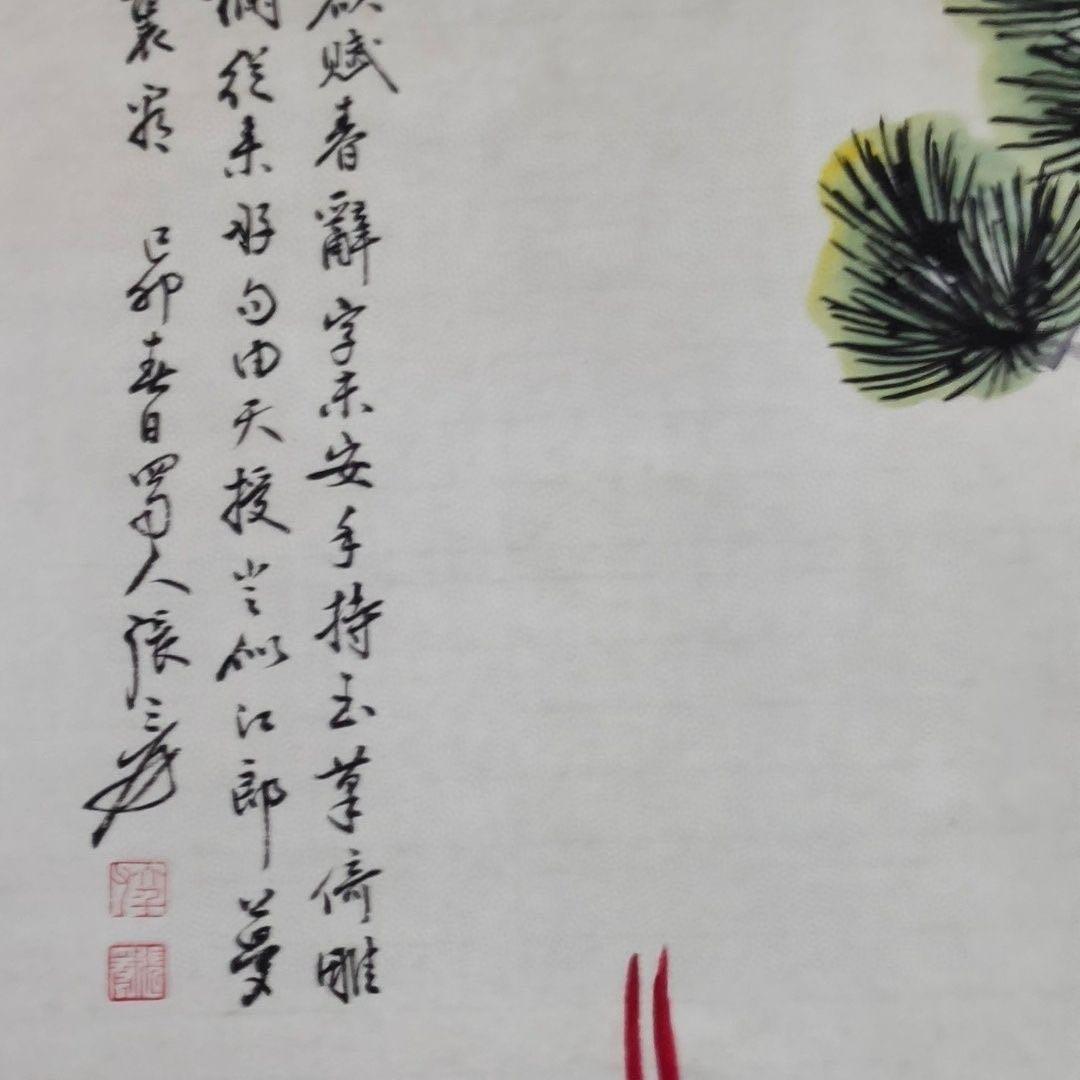 欲賦春辭字未安手持玉筆倚雕
欄從来好句由天授豈似江郎夢
裏
己卯春日蜀人張大千